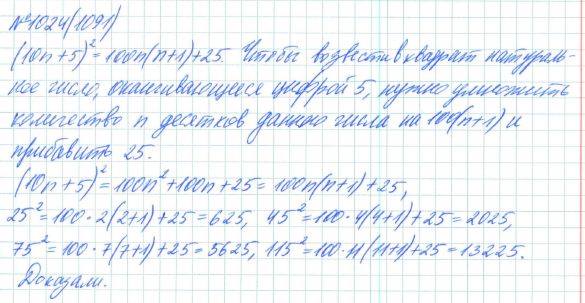 №1024(1091)
(10n+5)² = 100n(n+1)+25. Чтобы возвести в квадрат натураль-
ное число, оканчивающееся цифрой 5, нужно умножить
количество n десятков данного числа на 100(n+1) и
прибавить 25.
(10n+5)² = 100n²+100n+25 = 100n(n+1)+25,
25² = 100·2(2+1)+25 = 625, 45² = 100·4(4+1)+25 = 2025,
75² = 100·7(7+1)+25 = 5625, 115² = 100·11(11+1)+25 = 13225.
Доказали.